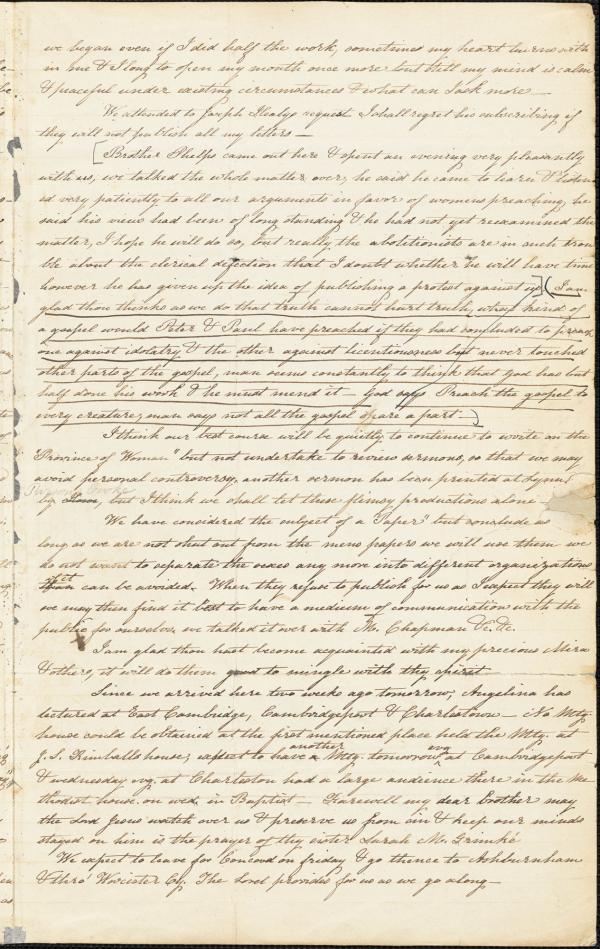 we began even if I did half the work, sometimes my heart burns with
in me & I long to open my mouth once more but still my mind is calm
& peaceful under existing circumstances & what can I ask more —
We attended to Joseph Healys request I shall regret his subscribing if
they will not publish all my letters —
[Brother Phelps came out here & spent an evening very pleasantly
with us, we talked the whole matter over, he said he came to learn & listen
ed very patiently to all our arguments in favor of womens preaching, he
said his views had been of long standing & he had not yet reexamined the
matter, I hope he will do so, but really the abolitionists are in such trou
ble about the clerical defection that I doubt whether he will have time
however he has given up the idea of publishing a protest against us] (I am
glad thou thinks as we do that truth cannot hurt truth, what kind of
a gospel would Peter & Paul have preached if they had concluded to preach
one against idolatry & the other against licentiousness but never touched
other parts of the gospel, man seems constantly to think that God has but
half done his work & he must mend it — God says Preach the gospel to
every creature, man says not all the gospel spare a part —)
I think our best course will be quietly to continue to write on the
"Province of Woman" but not undertake to review sermons, so that we may
avoid personal controversy, another sermon has been printed at Lynn
by but I think we shall let these flimsy productions alone —
We have considered the subject of a "Paper" but conclude as
long as we are not shut out from the mens papers we will use them we
do not want to separate the sexes any more into different organizations
than can be avoided. When they refuse to publish for us as I expect they will
we may then find it best to have a medium of communication with the
public for ourselves, we talked it over with M. Chapman &c. &c.
I am glad thou hast become acquainted with my precious Mira
& others, it will do them good to mingle with thy spirit
Since we arrived here two weeks ago tomorrow, Angelina has
lectured at East Cambridge, Cambridgeport & Charlestown — No Mtg.
house could be obtained at the first mentioned place held the Mtg. at
J. S. Kimballs house, expect to have another Mtg. tomorrow evg at Cambridgeport
& wednesday evg. at Charleston had a large audience there in the Me
thodist house. on wed. in Baptist — Farewell my dear brother may
the Lord Jesus watch over us & preserve us from sin & keep our minds
stayed on him is the prayer of thy sister Sarah M. Grimké
We expect to leave for Concord on friday & go thence to Ashburnham
& thro' Worcister Co. The Lord provides for us as we go along —